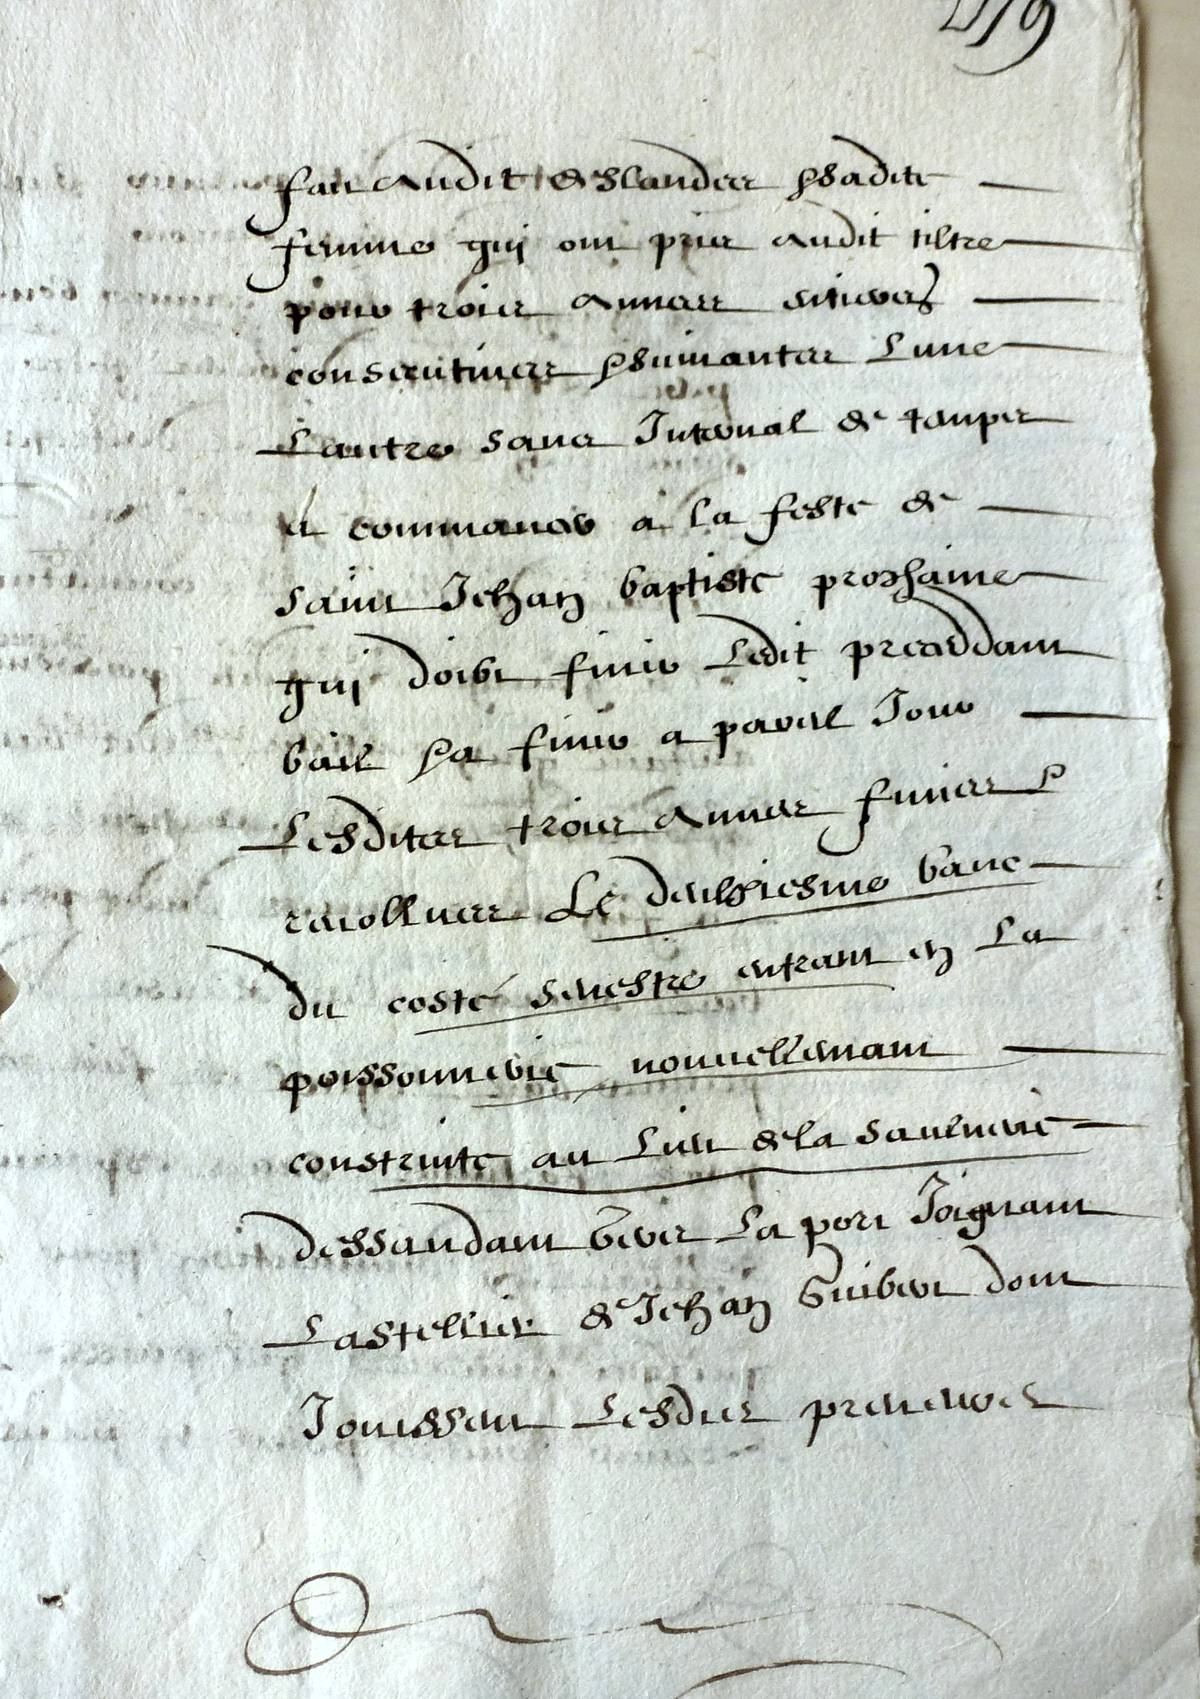 fait audit Deslandes & sadite
femme qui ont pris audit tiltre
pour trois annees entieres
consecutives & suivantes L'une
L'autre sans Interval de temps
et commancer a la feste de
saint Jehan baptiste prochaine
qui doibt finir Ledit preceddant
bail & a finir a pareil Jour
Lesdites trois annees finies &
revollues Le deuxiesme banc
du costé senestre entrant en La
poissonnerie nouvellemant
construite au Lieu de la saulnerie
dessandant vers La port Joignant
L'astellier de Jehan Guibert dont
Jouissent Lesdits preneurs